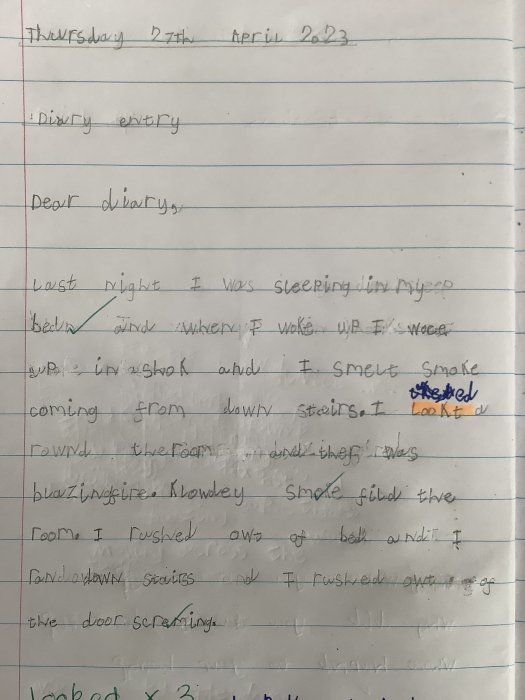 Thursday 27th April 2023
Diary entry
Dear diary,
Last night I was sleeping in my
bed and when I woke up I woce
up in a shok and I smelt smoke
coming from down stairs. I lookt a
rownd the room and ther was
blazing fire. Klowdey smoke fild the
room. I rushed owt of bed and I
ran down stairs and I rushed owt of
the door screming.
looked x 3